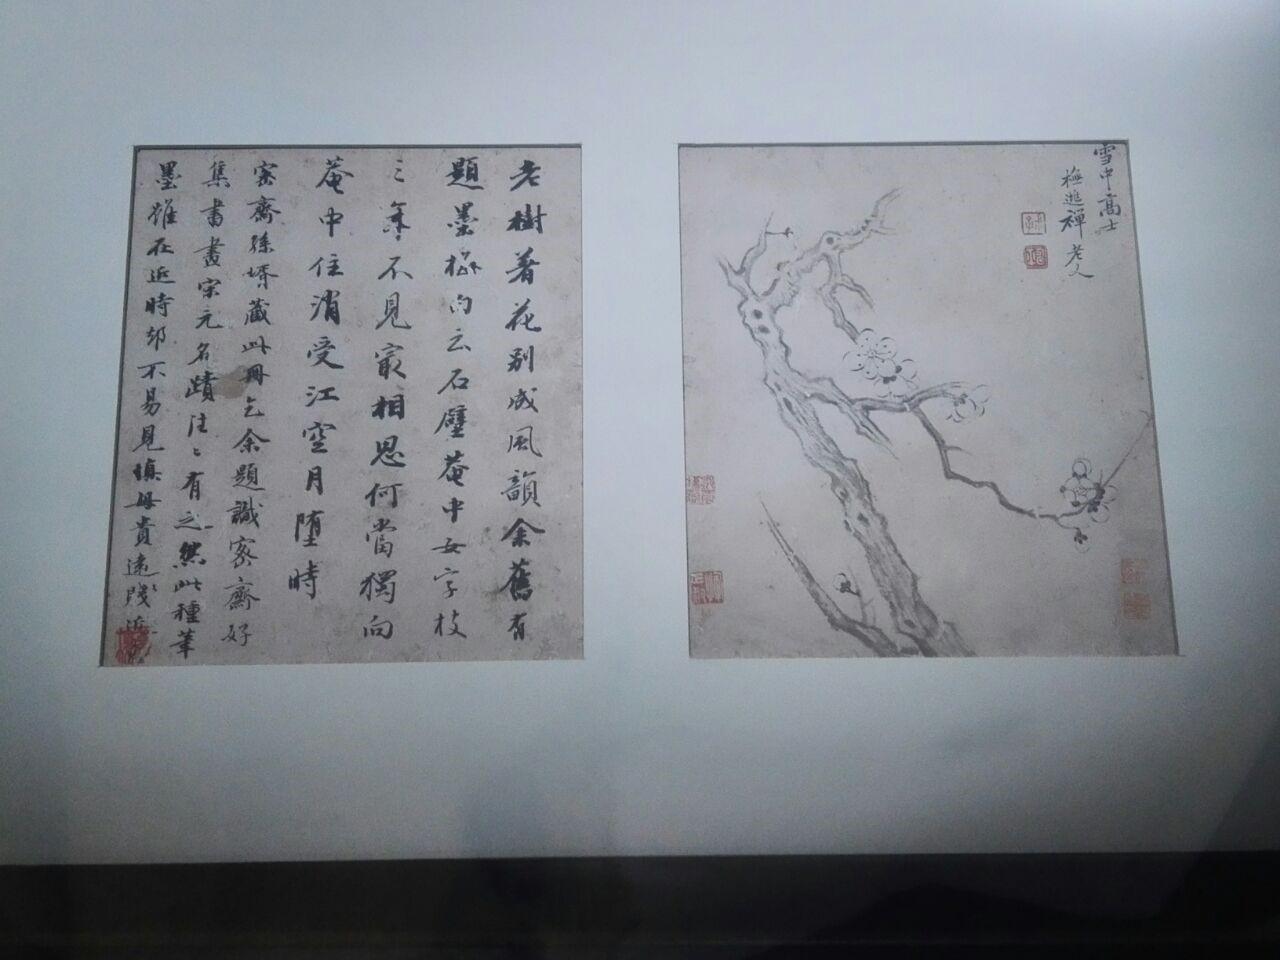 雪中高士
禅老人
老樹着花別成風韻余舊有
題墨梅句云石壁菴中女字枝
三年不見最相思何當獨向
菴中住消受江空月堕時
密齋孫壻藏此冊乞余題識密齋好
集書畫宋元名蹟往〻有之然此種筆
墨雖在近時却不易見慎毋貴遠賤近